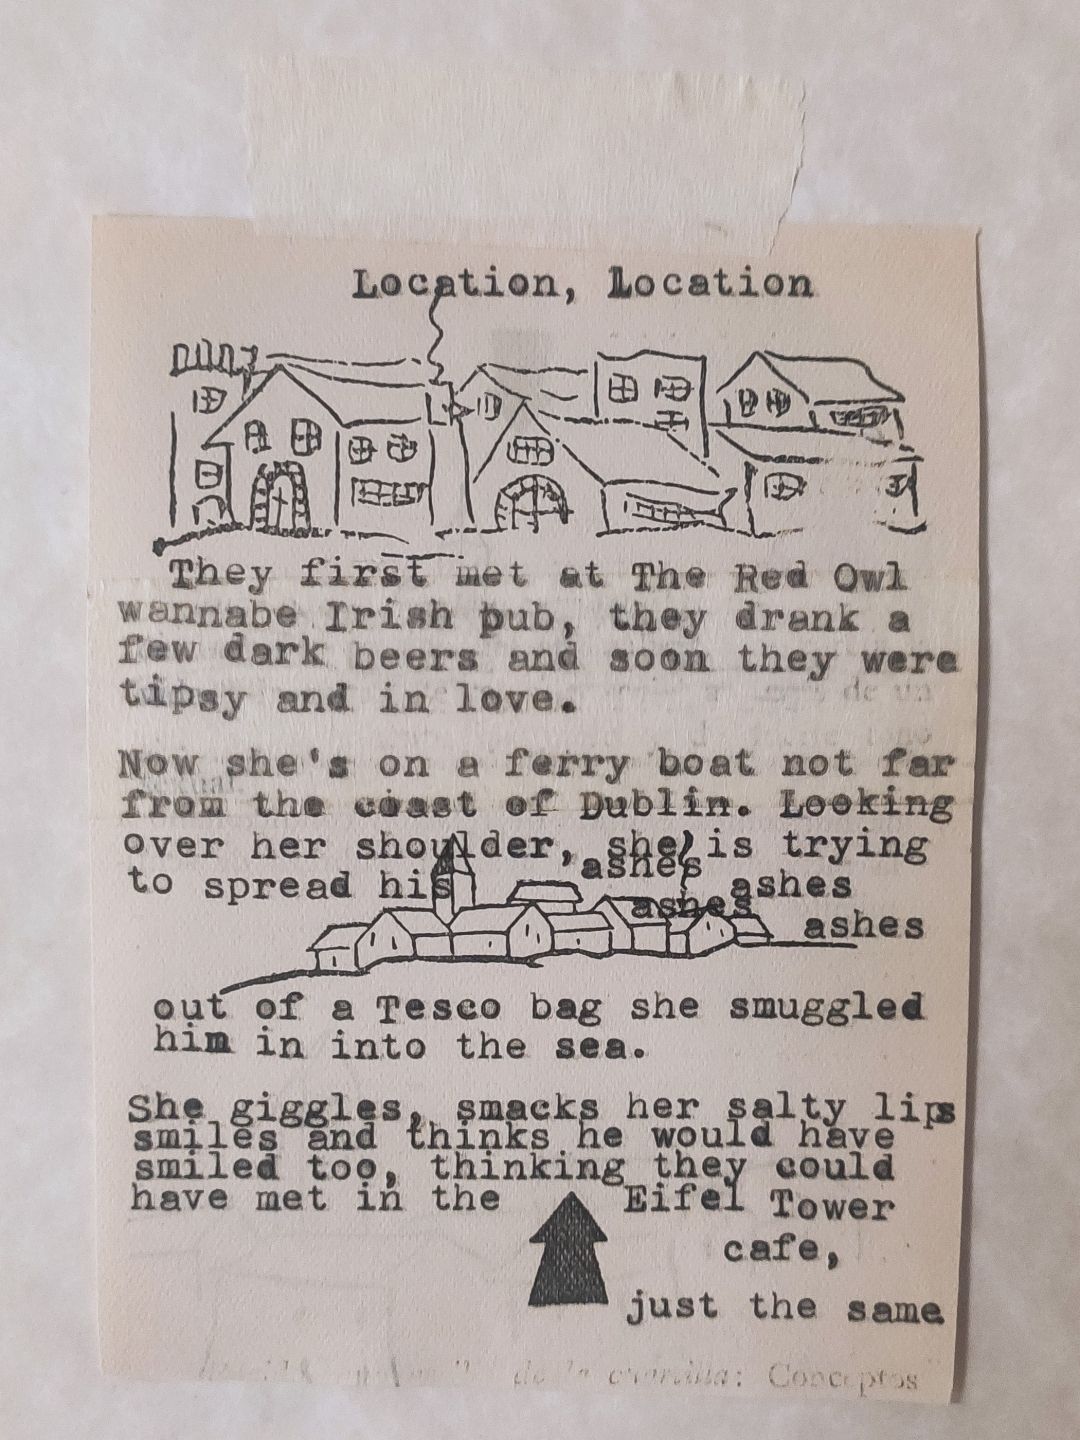 Location, Location
They first met at The Red Owl
wannabe Irish pub, they drank a
few dark beers and soon they were
tipsy and in love.
de un
Now she's on a ferry boat not far
from the coast of Dublin. Looking
over her shoulder, she is trying
to spread his ashes
ashes
ashes
ashes
out of a Tesco bag she smuggled
him in into the sea.
She giggles, smacks her salty lips
smiles and thinks he would have
smiled too, thinking they could
have met in the Eifel Tower
cafe,
just the same
de la : Conceptos